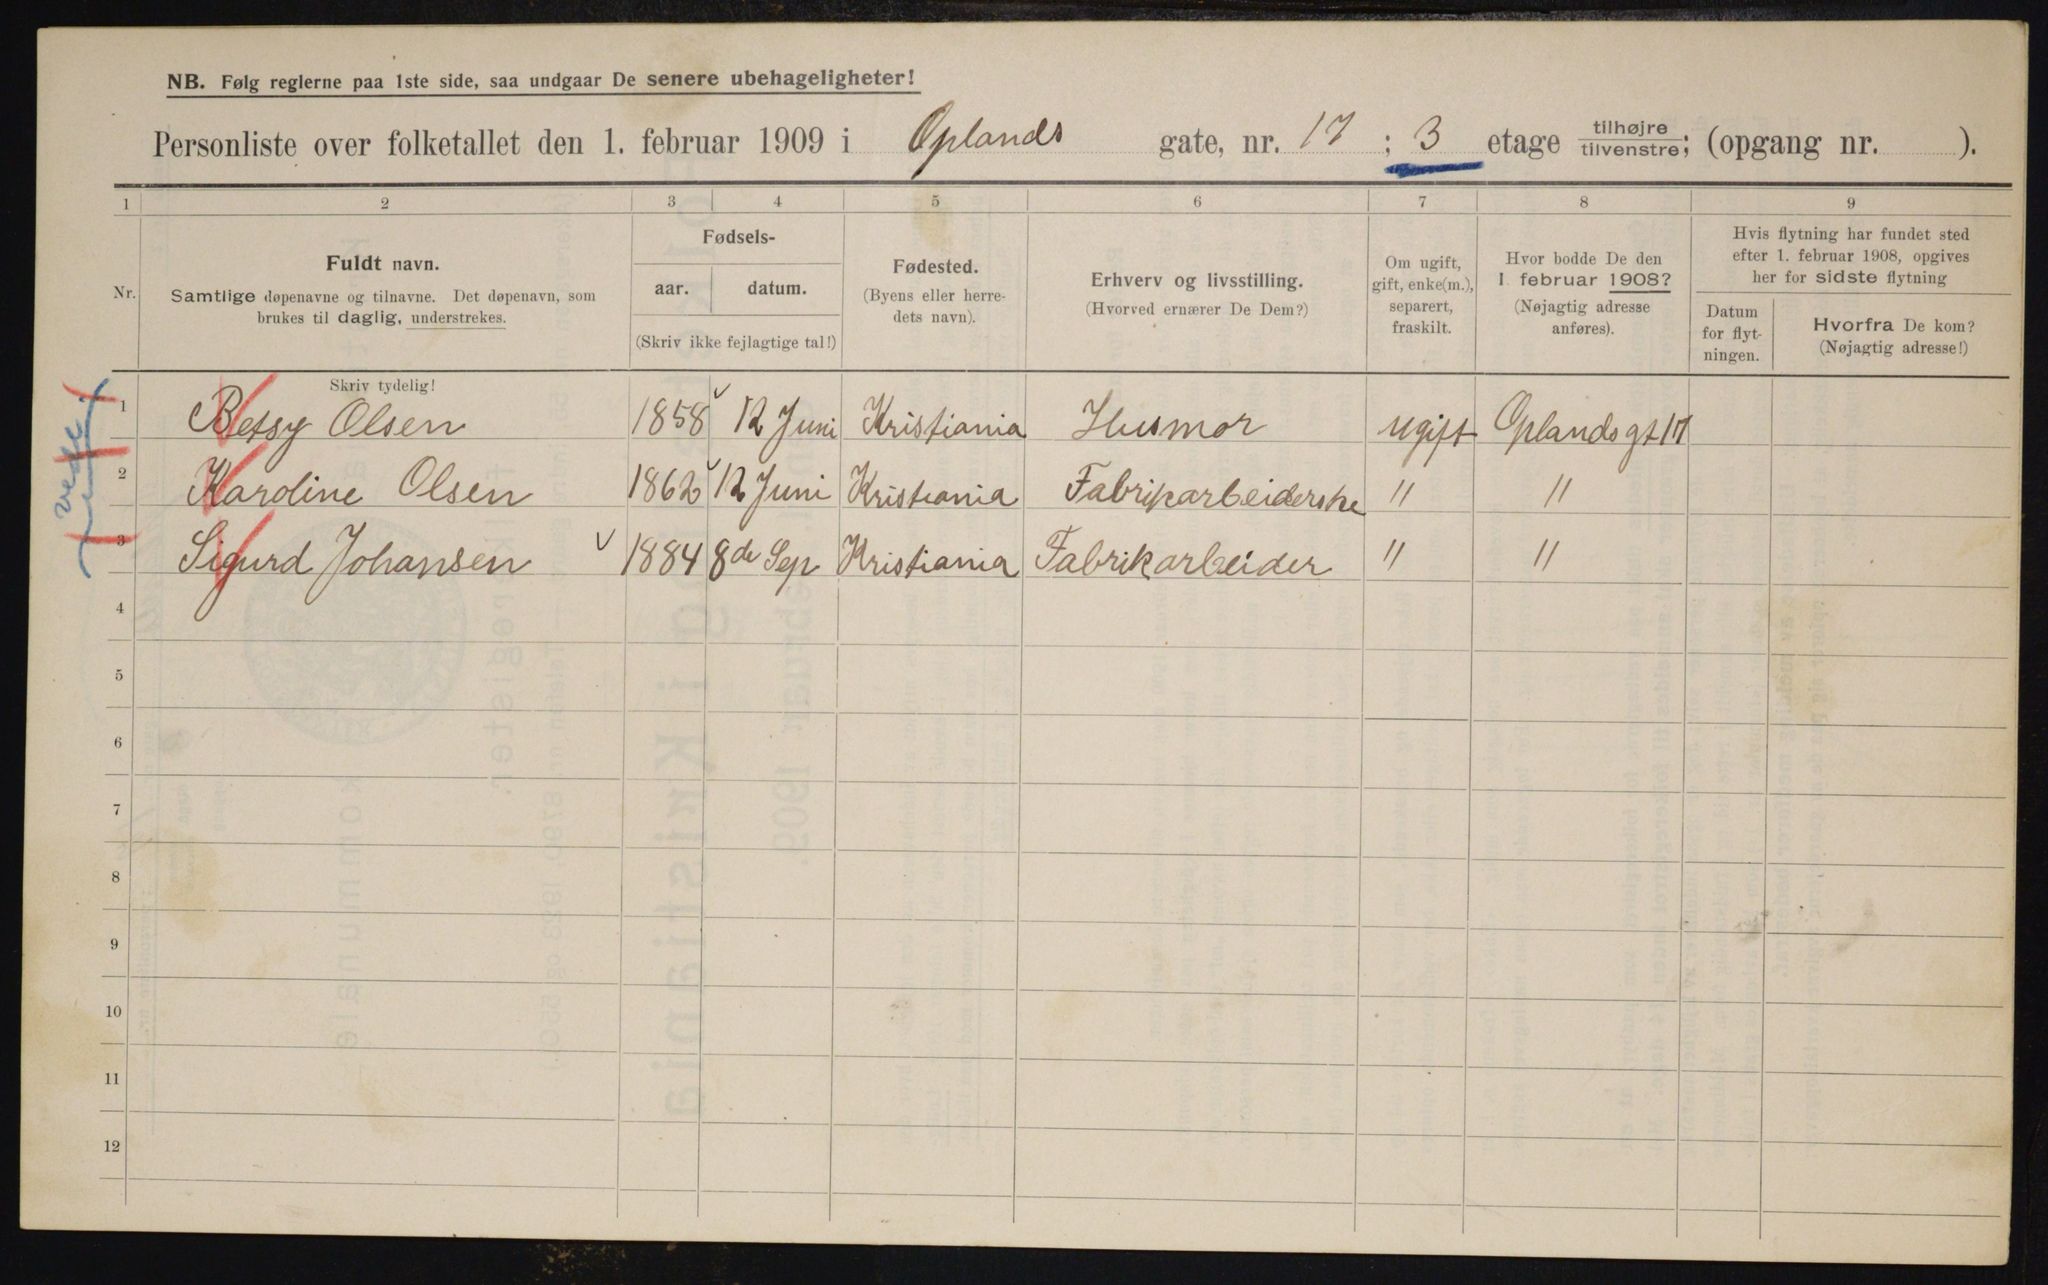 NB. Følg reglerne paa 1ste side, saa undgaar De senere ubehageligheter!
Personliste over folketallet den 1. februar 1909 i Oplands gate, nr. 17 ; 3 etage tilhøjre/tilvenstre; (opgang nr. ).
1 2 3 4 5 6 7 8 9
Nr.
Fuldt navn.
Samtlige døpenavne og tilnavne. Det døpenavn, som
brukes til daglig, understrekes.
Fødsels-
aar. datum.
(Skriv ikke fejlagtige tal!)
Fødested.
(Byens eller herre-
dets navn).
Erhverv og livsstilling.
(Hvorved ernærer De Dem?)
Om ugift,
gift, enke(m.),
separert,
fraskilt.
Hvor bodde De den
1. februar 1908?
(Nøjagtig adresse
anføres).
Hvis flytning har fundet sted
efter 1. februar 1908, opgives
her for sidste flytning
Datum
for flyt-
ningen.
Hvorfra De kom?
(Nøjagtig adresse!)
Skriv tydelig!
1 Betsy Olsen 1858 12 Juni Kristiania Husmor ugift Oplandsgt 17
2 Karoline Olsen 1862 12 Juni Kristiania Fabrikarbeiderske " "
3 Sigurd Johansen 1884 8de Sep Kristiania Fabrikarbeider " "
4
5
6
7
8
9
10
11
12